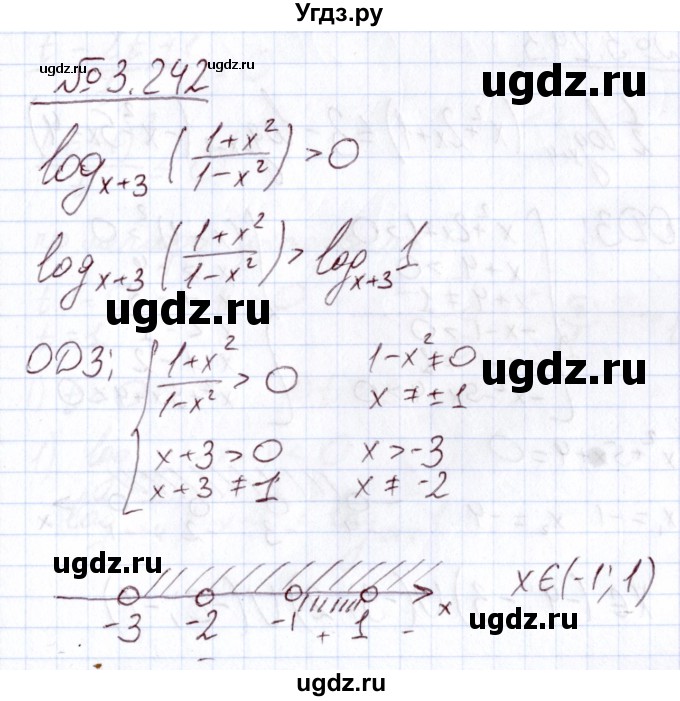 Угдз.ру
ugdz.ru
ugdz.ru
№3.242
ugdz.ru
log_{x+3} ((1+x²)/(1-x²)) > 0
log_{x+3} ((1+x²)/(1-x²)) > log_{x+3} 1
ugdz.ru
ugdz.ru
ОДЗ: { (1+x²)/(1-x²) > 0    1-x² ≠ 0
x ≠ ±1
x+3 > 0    x > -3
x+3 ≠ 1    x ≠ -2
ugdz.ru
x ∈ (-1; 1)
-3 -2 -1 + 1 - x
-
ugdz.ru
ugdz.ru